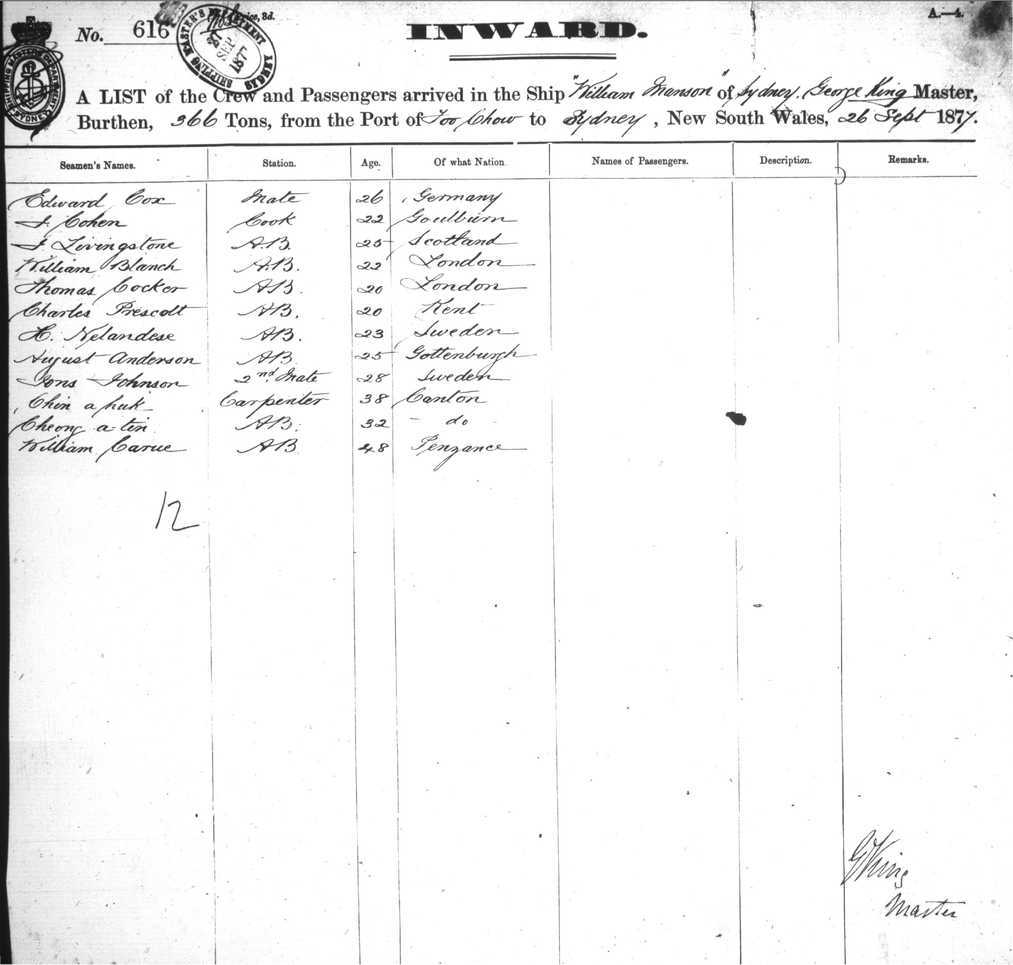 No. 616
INWARD.
A.—4.
SHIPPING MASTER'S DEPARTMENT SYDNEY 27 SEP 1877
A LIST of the Crew and Passengers arrived in the Ship "William Manson" of Sydney. George King Master,
Burthen, 366 Tons, from the Port of Foo Chow to Sydney, New South Wales, 26 Sept 1877.
Seamen's Names. Station. Age. Of what Nation. Names of Passengers. Description. Remarks.
Edward Cox Mate 26 Germany
J Cohen Cook 22 Goulburn
J Livingstone A.B. 25 Scotland
William Blanch A.B. 22 London
Thomas Cocker AB. 20 London
Charles Prescott AB. 20 Kent
H. Nelandese AB. 23 Sweden
August Anderson AB 25 Gottenburgh
Jons Johnson 2nd Mate 28 Sweden
Chin a puk Carpenter 38 Canton
Cheong a tin AB. 32 - do
William Carue AB 48 Penzance
12
G King
Master